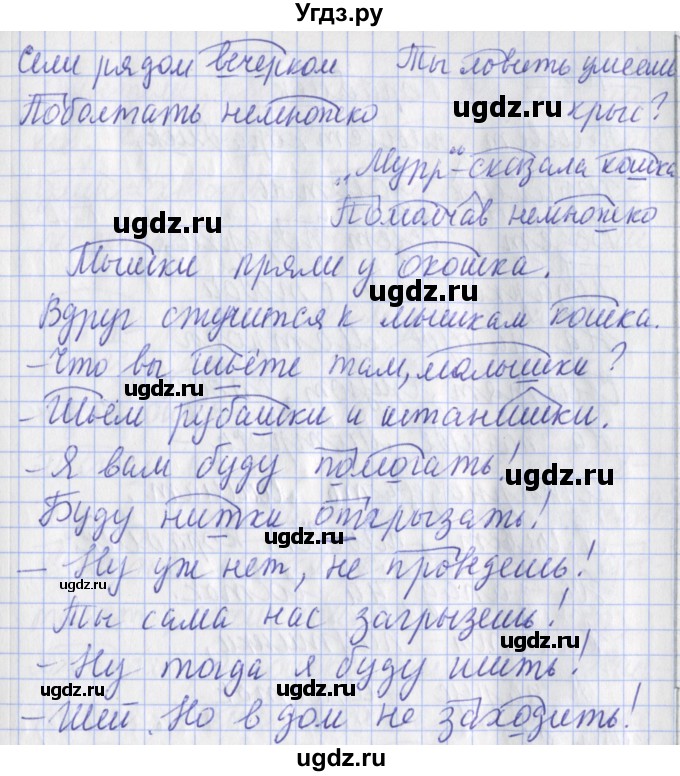 Угдз.ру
Сели рядом вечерком Ты ловить умеешь
Поболтать немножко крыс?
„Мурр“ - сказала кошка
Помолчав немножко
Мышки пряли у окошка.
Вдруг стучится к мышкам кошка.
- Что вы шьёте там, малышки?
- Шьём рубашки и штанишки.
- Я вам буду помогать!
Буду нитки отгрызать!
- Ну уж нет, не проведешь!
Ты сама нас загрызешь!
- Ну тогда я буду шить!
- Шей. Но в дом не заходить!
ugdz.ru
ugdz.ru
ugdz.ru
ugdz.ru
ugdz.ru
ugdz.ru
ugdz.ru
ugdz.ru
ugdz.ru
ugdz.ru
ugdz.ru
ugdz.ru